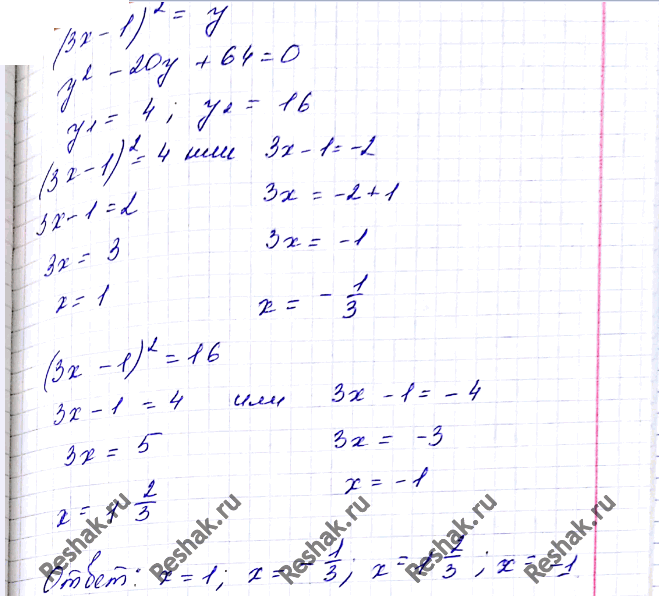 (3x-1)² = y
y² - 20y + 64 = 0
y₁ = 4; y₂ = 16
(3x-1)² = 4 или 3x-1 = -2
3x-1 = 2 3x = -2+1
3x = 3 3x = -1
x = 1 x = - 1/3
(3x-1)² = 16
3x-1 = 4 или 3x-1 = -4
3x = 5 3x = -3
x = 1 2/3 x = -1
Ответ: x = 1; x = - 1/3; x = 1 2/3; x = -1
Reshak.ru Reshak.ru Reshak.ru Reshak.ru Reshak.ru